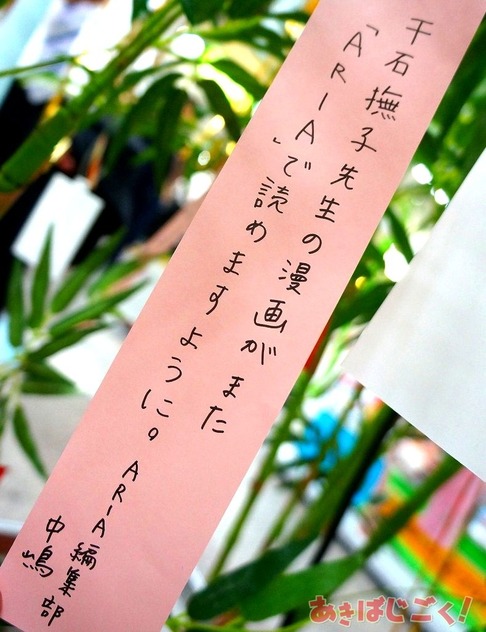 千石撫子先生の漫画がまた
「ARIA」で読めますように。
ARIA編集部
中嶋
あきばじごく!